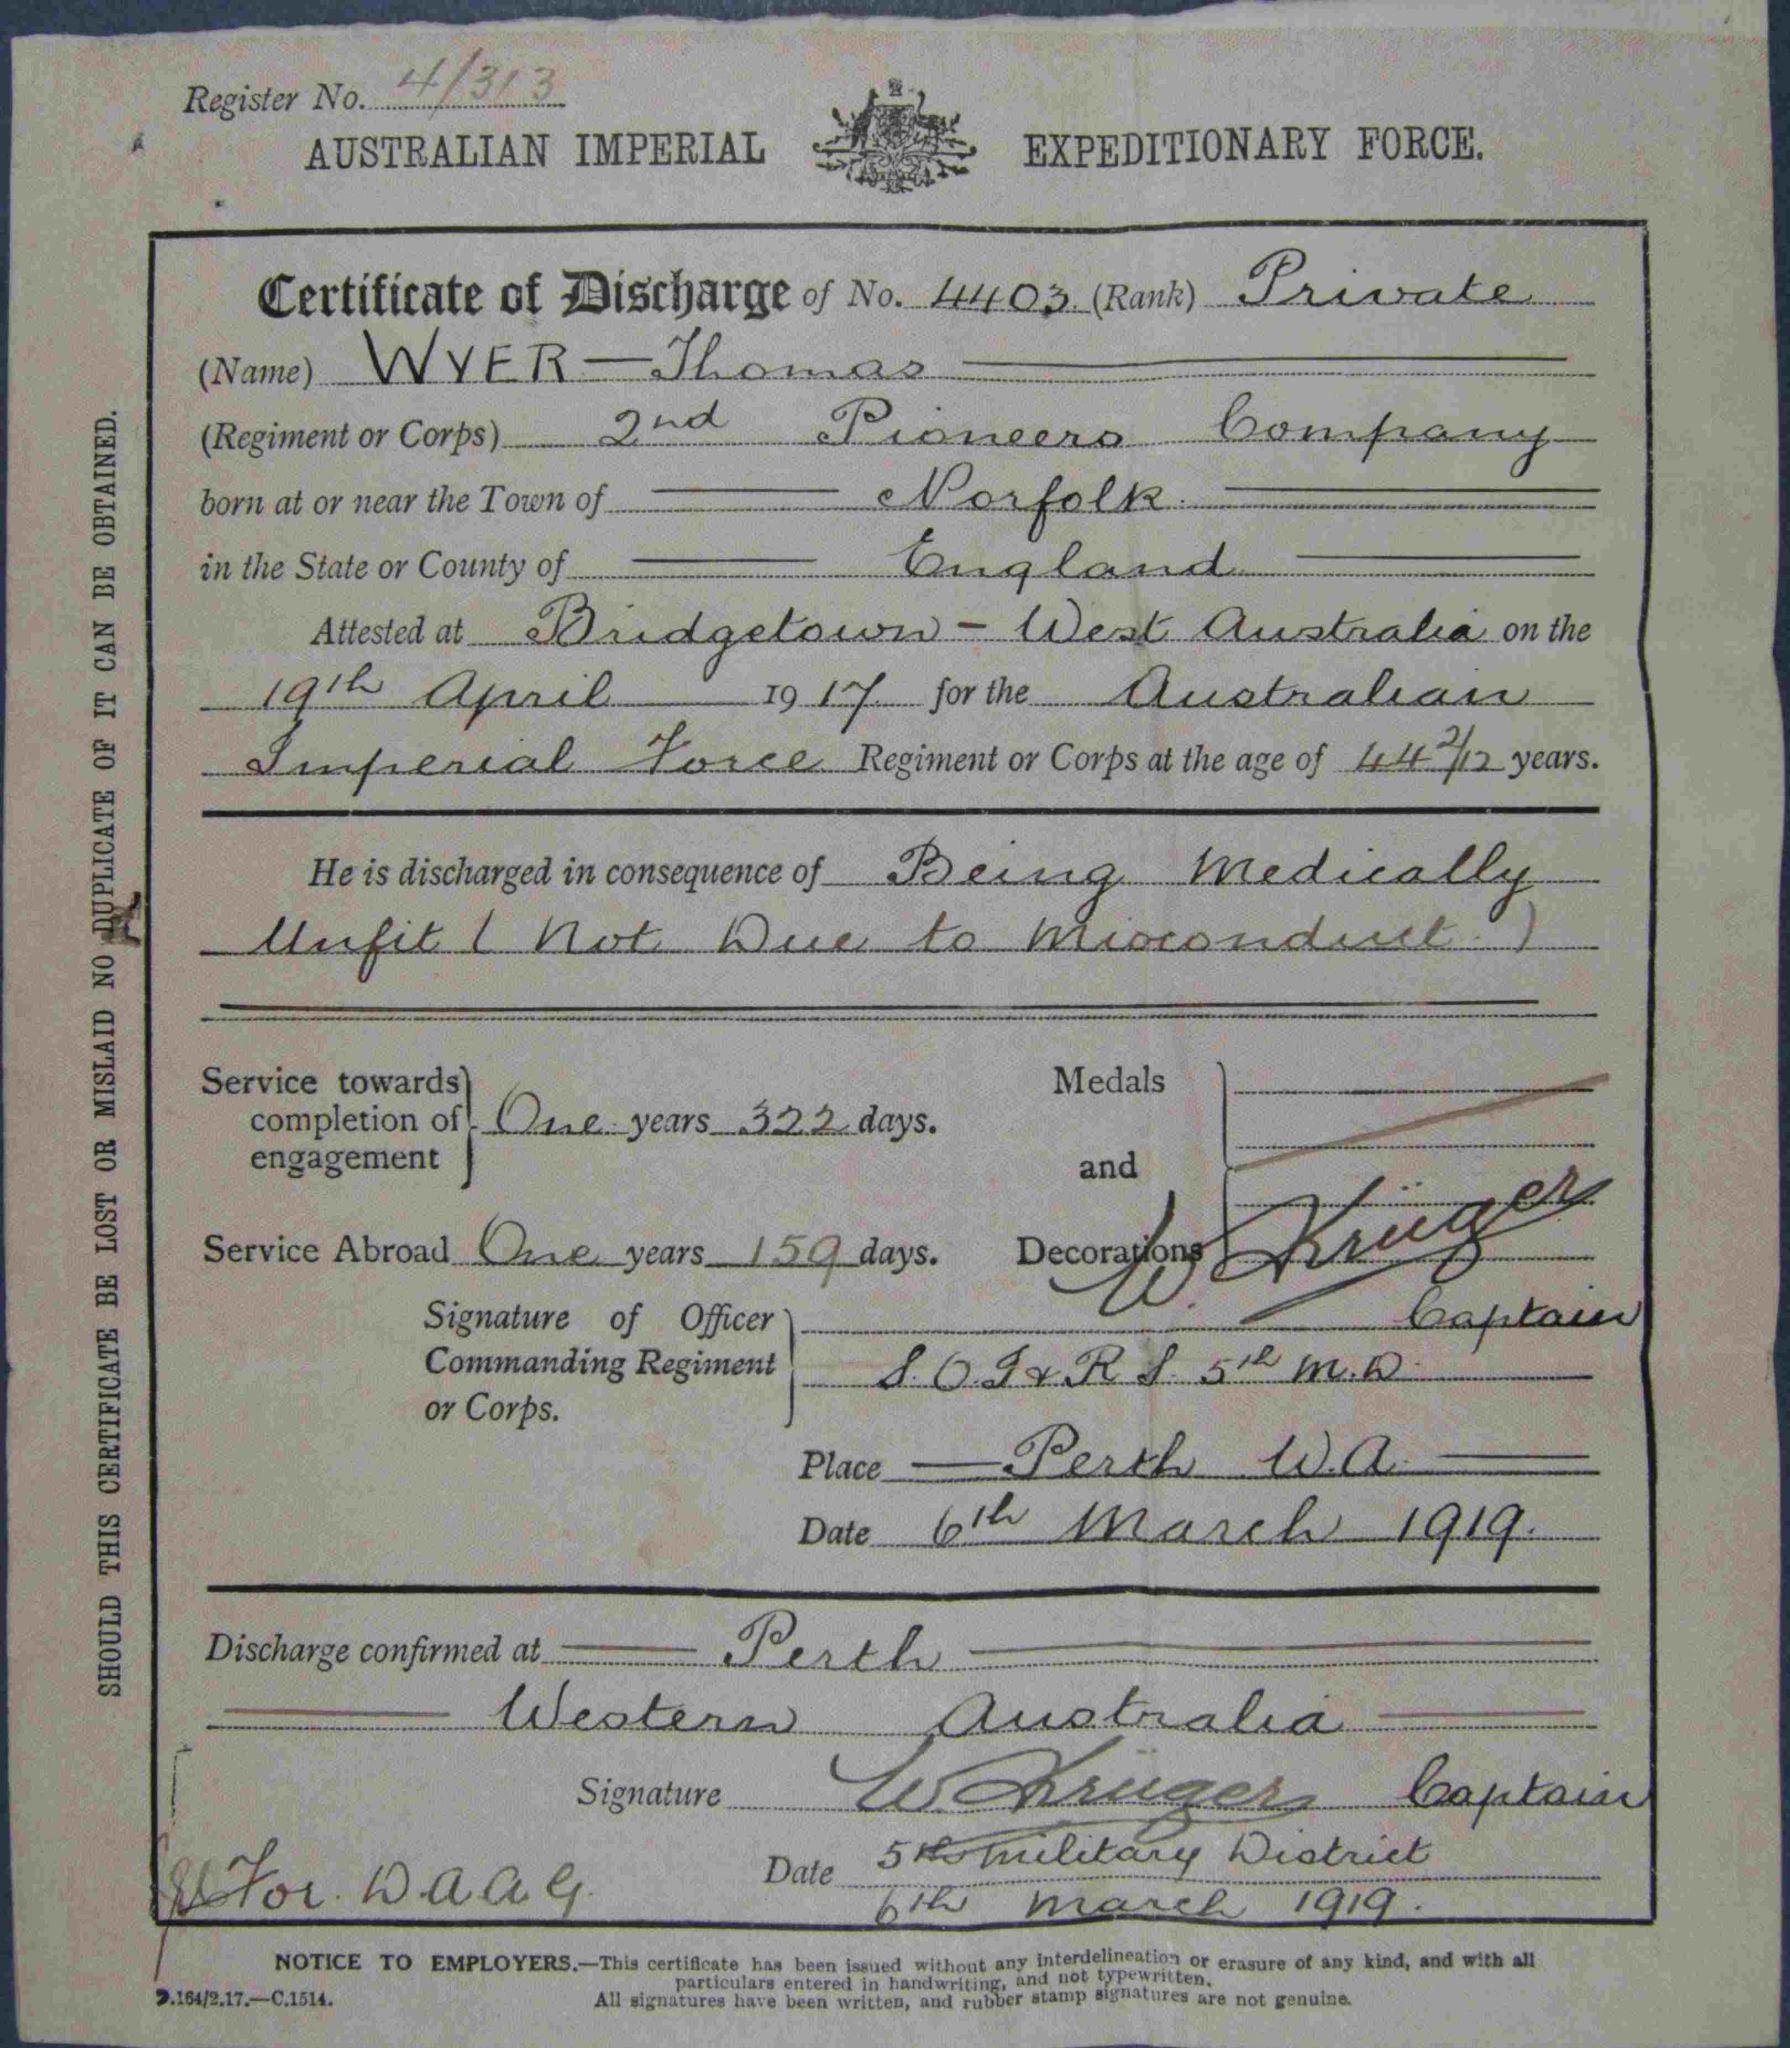 Register No. 4/313
AUSTRALIAN IMPERIAL EXPEDITIONARY FORCE.
Certificate of Discharge of No. 4403. (Rank) Private
(Name) WYER — Thomas
(Regiment or Corps) 2nd Pioneers Company
born at or near the Town of Norfolk.
in the State or County of England
Attested at Bridgetown - West Australia on the
19th April 1917. for the Australian
Imperial Force Regiment or Corps at the age of 44 2/12 years.
He is discharged in consequence of Being Medically
Unfit ( Not Due to Misconduct. )
Service towards completion of engagement One years 322 days.
Medals
and
Decorations
Service Abroad One years 159 days.
W Krüger
Signature of Officer Commanding Regiment or Corps. Captain
S. O. I & R S. 5th M.D.
Place — Perth W.A.
Date 6th March 1919.
Discharge confirmed at — Perth
Western Australia
Signature W. Krüger Captain
Date 5th Military District
6th March 1919.
For. D A A G.
NOTICE TO EMPLOYERS.—This certificate has been issued without any interdelineation or erasure of any kind, and with all
particulars entered in handwriting, and not typewritten.
D.164/2.17.—C.1514.
All signatures have been written, and rubber stamp signatures are not genuine.
SHOULD THIS CERTIFICATE BE LOST OR MISLAID NO DUPLICATE OF IT CAN BE OBTAINED.